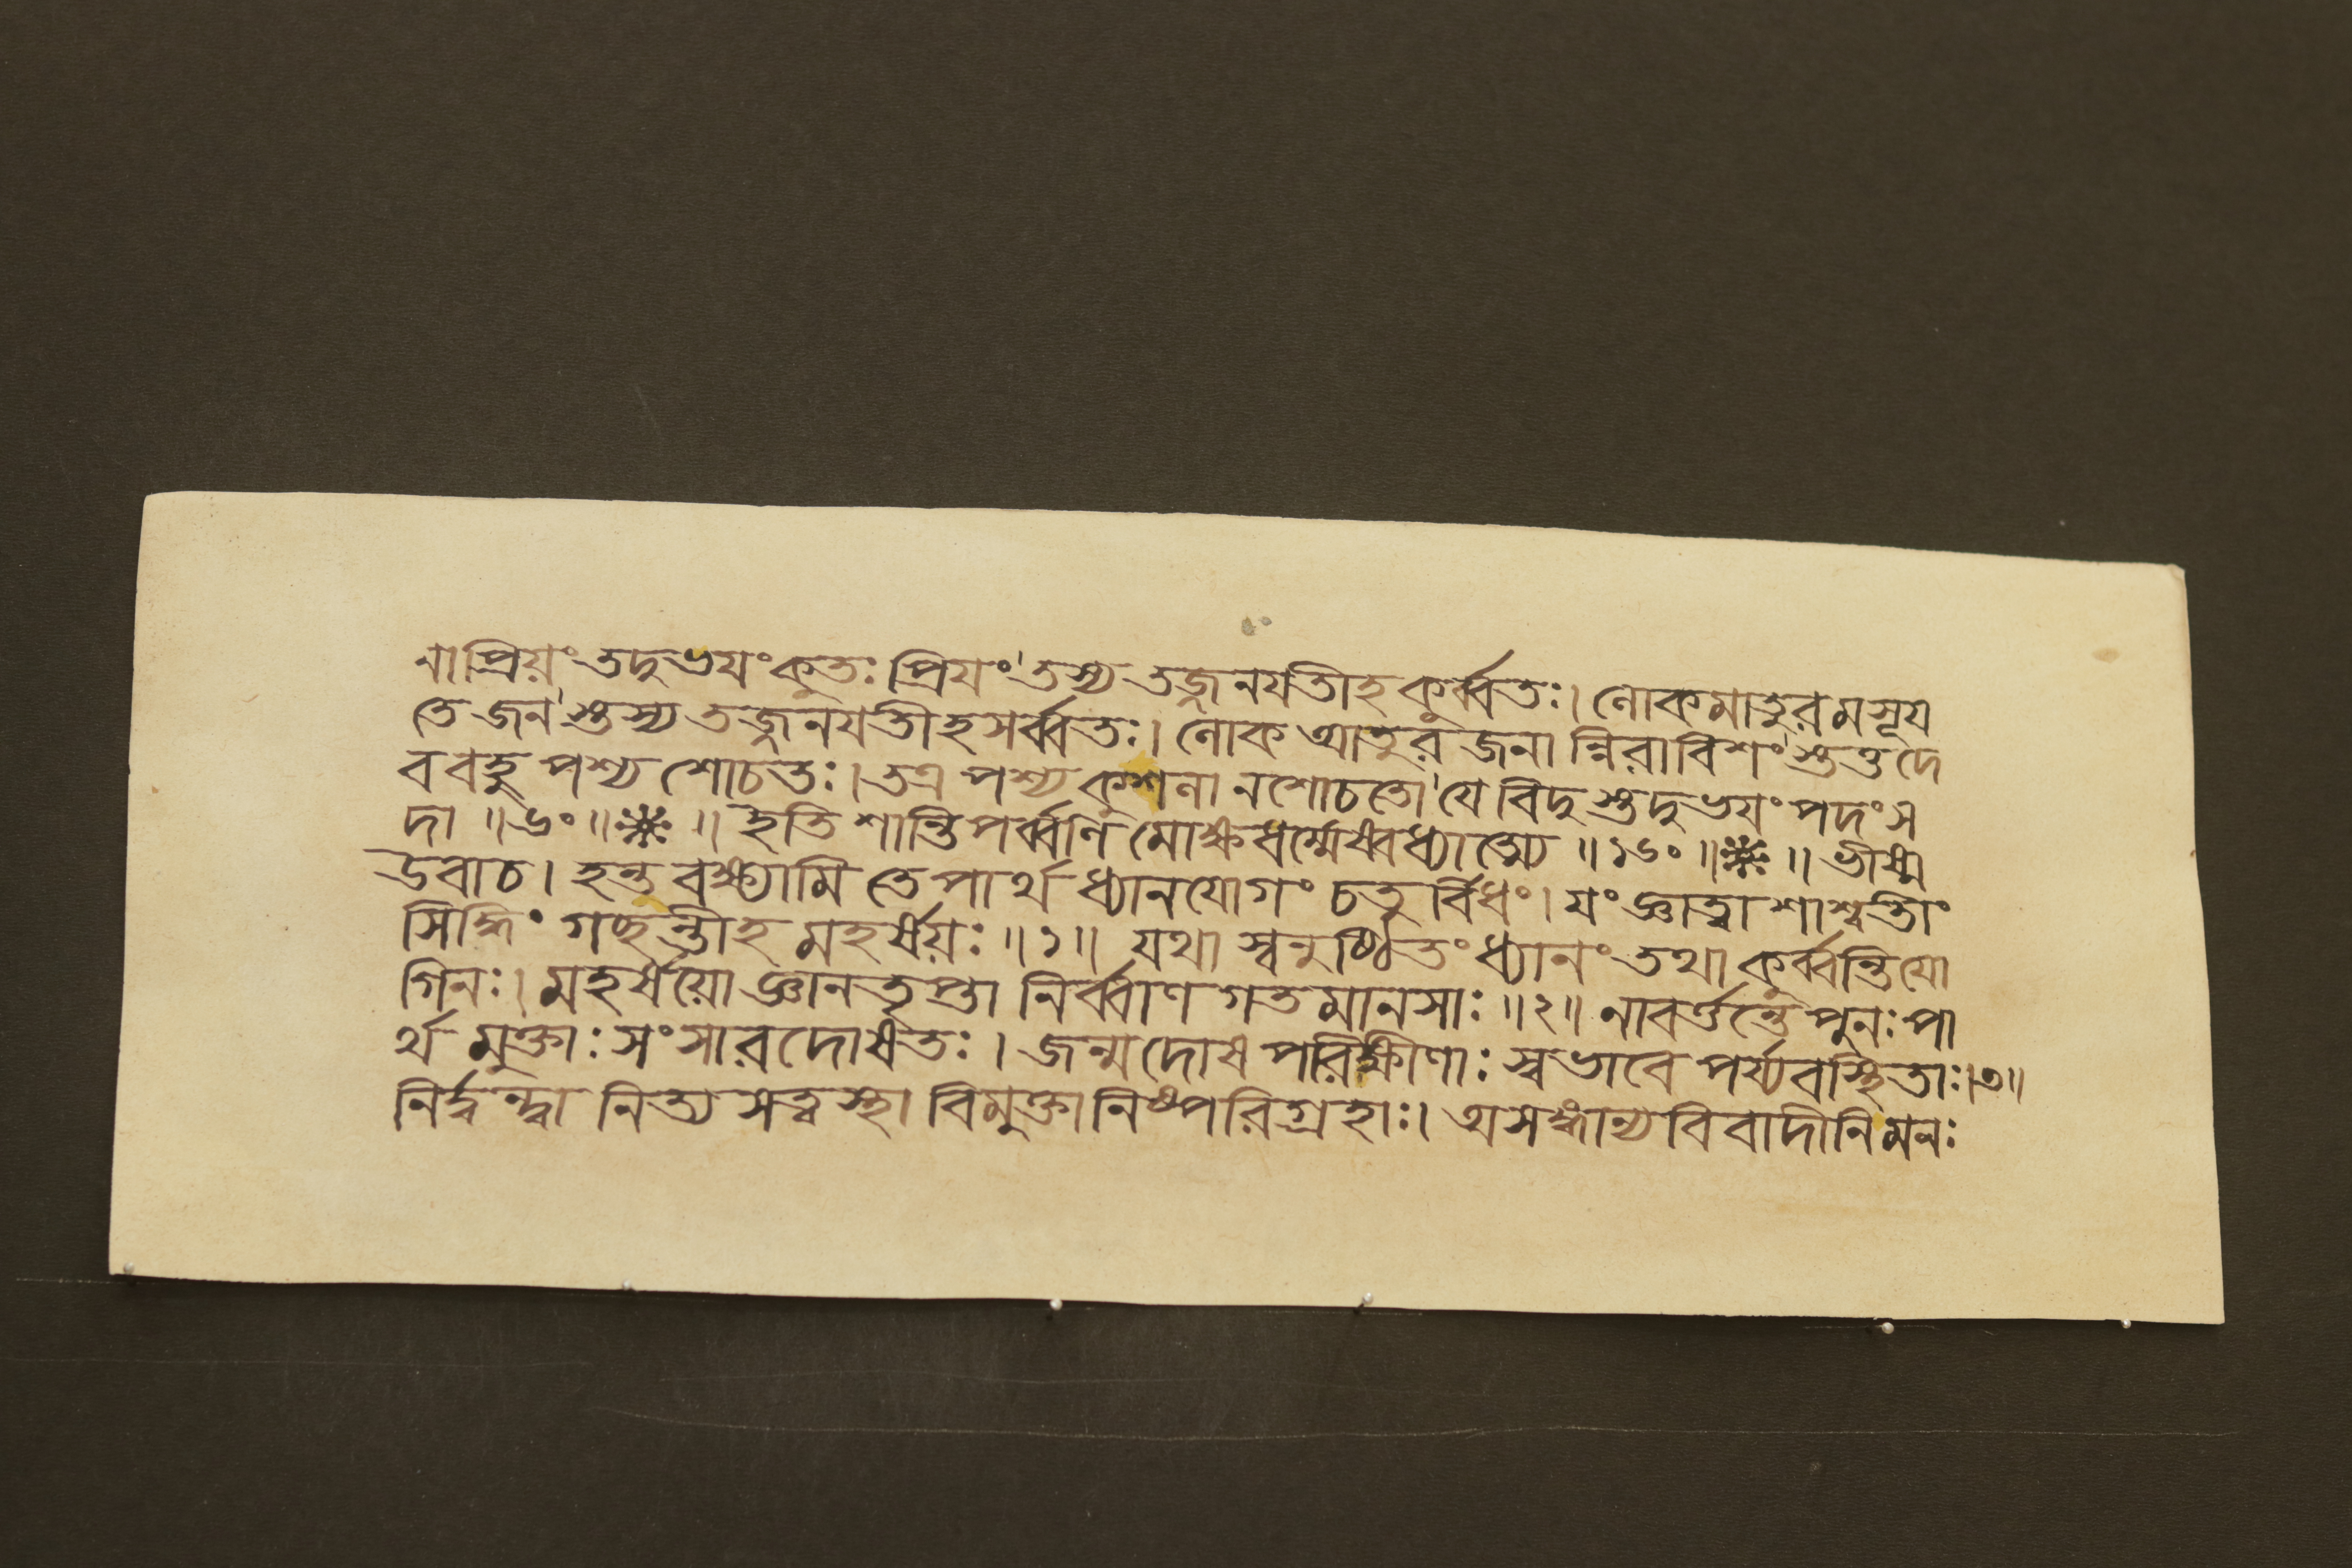 নাপ্রিয়ং তদুভয়ং কুতঃ প্রিয়ং তস্য তজ্জনযতীহ কুর্ব্বতঃ। লোকমাতুরমসূয
তে জনস্তস্য তজ্জনযতীহ সর্ব্বতঃ। লোক আতুর জনান্নিরাবিশংস্তত্তদে
ব বহু পশ্য শোচতঃ। তত্র পশ্য কুশলানশোচতো যে বিদুস্তদুভয়ং পদং স
দা ॥৬০॥ ※ ॥ ইতি শান্তিপর্ব্বণি মোক্ষধর্ম্মেষ্বধ্যাত্ম্যে ॥১৬০॥ ※ ॥ ভীষ্ম
উবাচ। হন্ত বক্ষ্যামি তে পার্থ ধ্যানযোগং চতুর্ব্বিধং। যং জ্ঞাত্বা শাশ্বতীং
সিদ্ধিং গচ্ছন্তীহ মহর্ষয়ঃ ॥১॥ যথা স্বনুষ্ঠিতং ধ্যানং তথা কুর্ব্বন্তি যো
গিনঃ। মহর্ষয়ো জ্ঞানতৃপ্তা নির্ব্বাণগতমানসাঃ ॥২॥ নাবর্ত্তন্তে পুনঃ পা
র্থ মুক্তাঃ সংসারদোষতঃ। জন্মদোষপরিক্ষীণাঃ স্বভাবে পর্য্যবস্থিতাঃ।৩॥
নির্দ্বন্দ্বা নিত্যসত্ত্বস্থা বিমুক্তা নিষ্পরিগ্রহাঃ। অসঙ্গান্যবিবাদীনি মনঃ